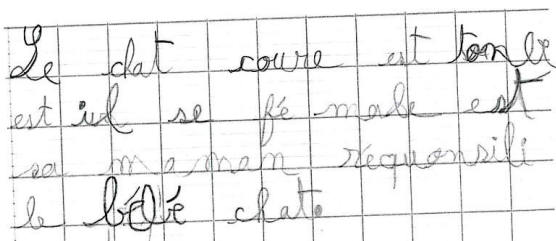 Le chat coure est tombé
est iul se fé male est
sa maman requonsili
le bébé chat.